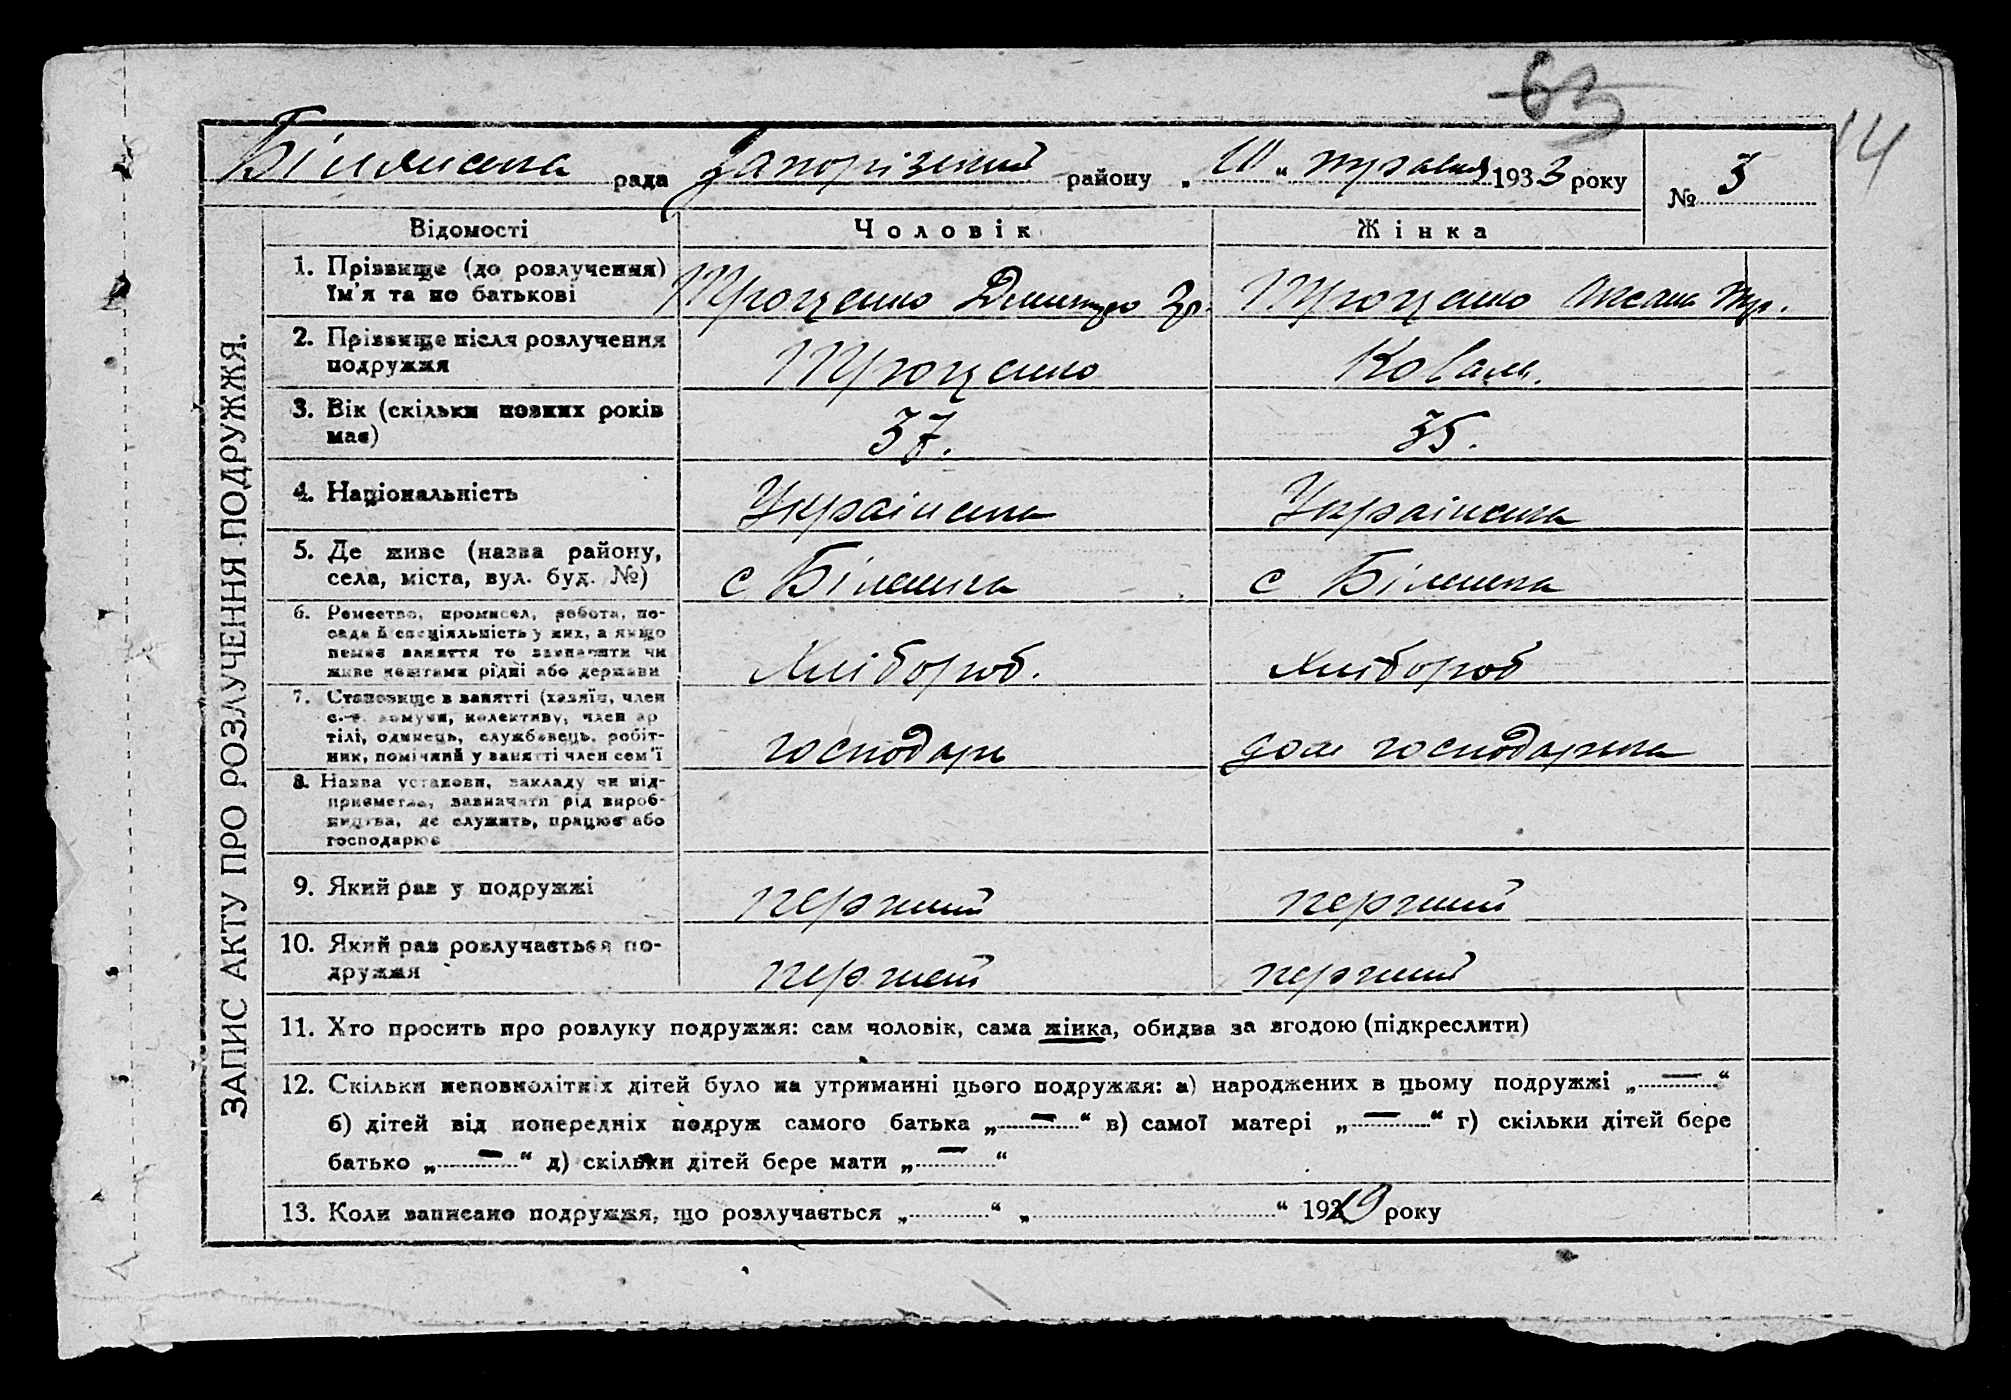 63
14
Білянська рада Запорізький району „ 10 “ травня 1933 року № 3
ЗАПИС АКТУ ПРО РОЗЛУЧЕННЯ ПОДРУЖЖЯ.
Відомості Чоловік Жінка
1. Прізвище (до розлучення)
їм'я та по батькові Троценко Дмитро Гр. Троценко Оксана
2. Прізвище після розлучення
подружжя Троценко Коваль.
3. Вік (скільки повних років
має) 37. 35.
4. Національність Українська Українська
5. Де живе (назва району,
села, міста, вул. буд. №) с Біленька с Біленька
6. Ремество, промисел, робота, по-
сада й спеціяльність у них, а якщо
немає заняття то зазначити чи
живе коштами рідні або держави Хлібороб. Хлібороб
7. Становище в занятті (хазяїн, член
с.-г. комуни, колективу, член ар
тілі, одинець, службовець, робіт-
ник, помічний у занятті член сем'ї господарь дом господарка
8. Назва установи, закладу чи під-
приємства, зазначити рід вироб-
ництва, де служить, працює або
господарює
9. Який раз у подружжі перший перший
10. Який раз розлучається по-
дружжя перший перший
11. Хто просить про розлуку подружжя: сам чоловік, сама жінка, обидва за згодою (підкреслити)
12. Скільки неповнолітніх дітей було на утриманні цього подружжя: а) народжених в цьому подружжі „ — “
б) дітей від попередніх подруж самого батька „ — “ в) самої матері „ — “ г) скільки дітей бере
батько „ — “ д) скільки дітей бере мати „ — “
13. Коли записано подружжя, що розлучається „ “ „ “ 1919 року